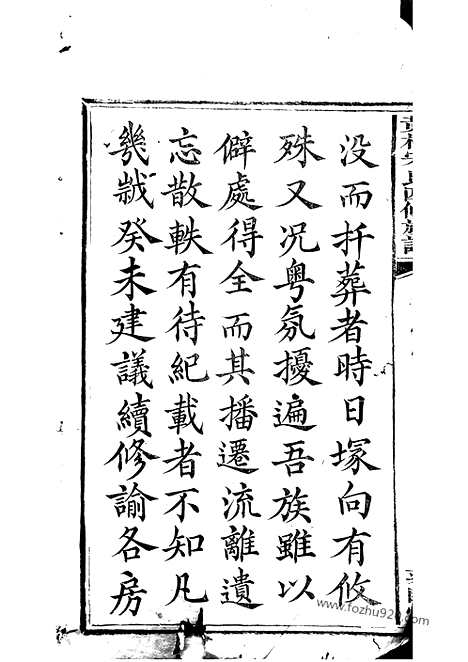 没而扦葬者時日塚向有攸
殊又况粤氛擾遍吾族雖以
僻處得全而其播遷流離遺
忘散軼有待紀載者不知凡
幾哉癸未建議續修諭各房
www.fozhu920.com